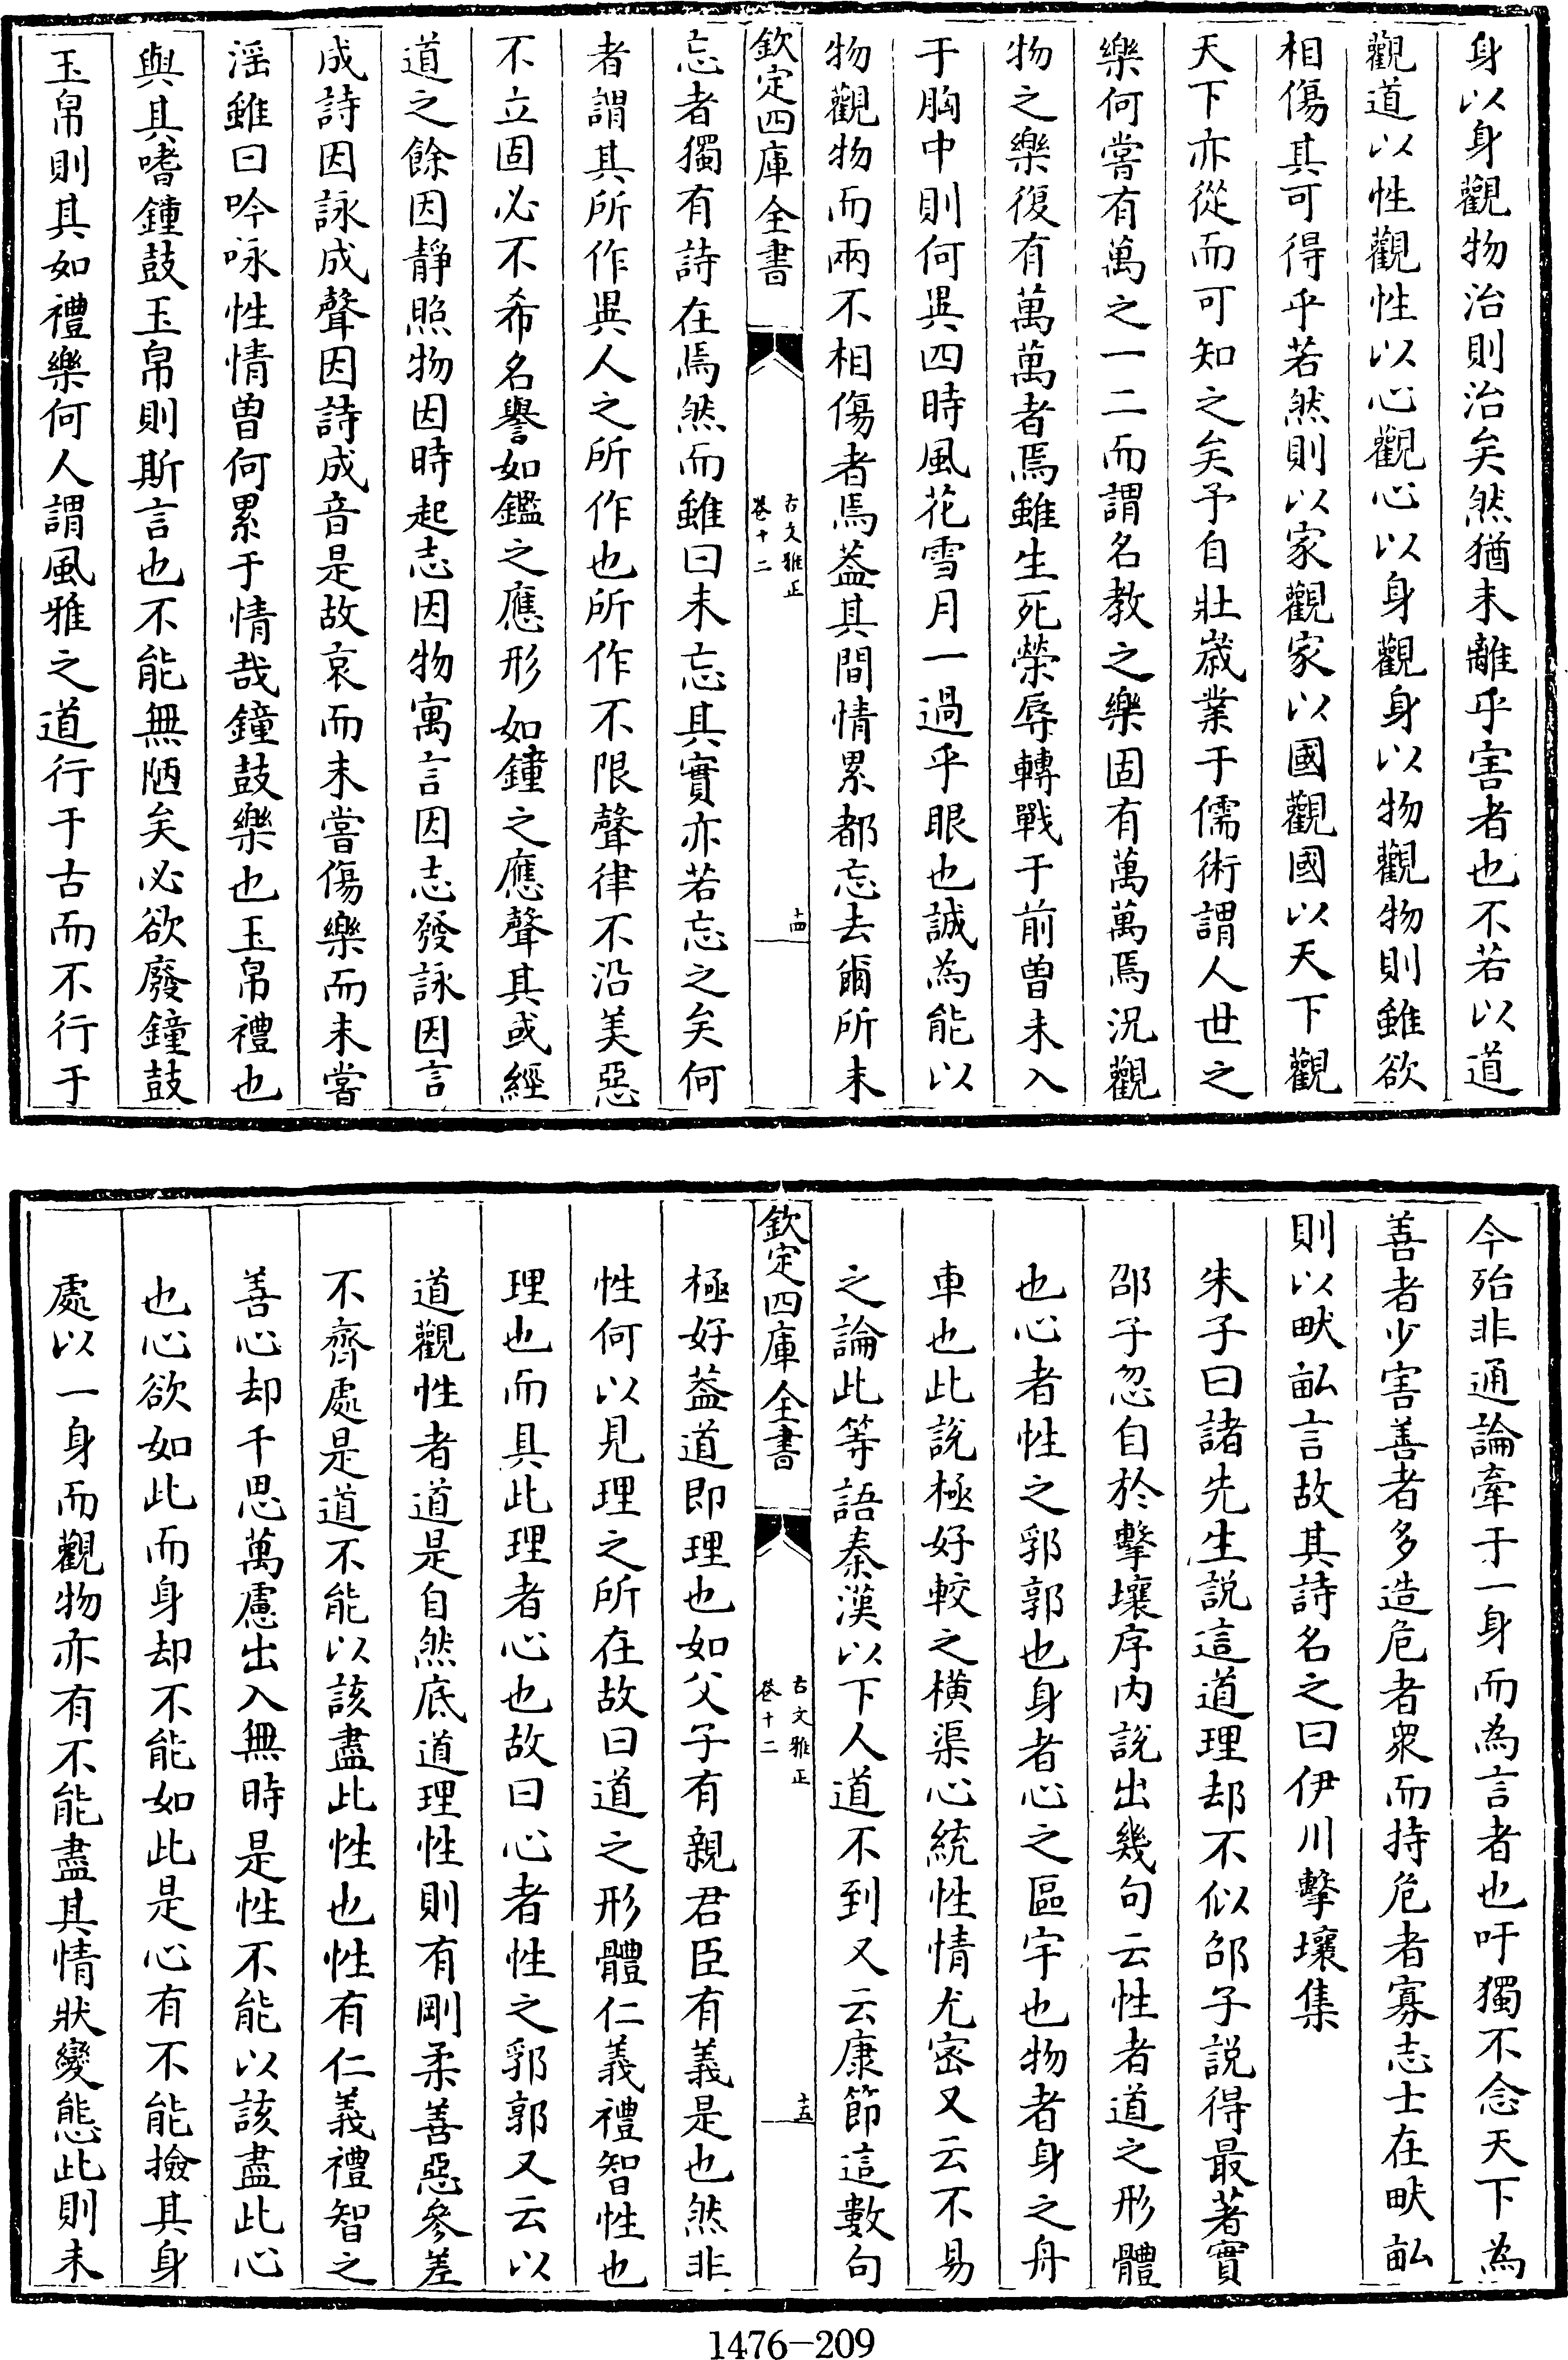 身以身觀物治則治矣然猶未離乎害者也不若以道
觀道以性觀性以心觀心以身觀身以物觀物則雖欲
相傷其可得乎若然則以家觀家以國觀國以天下觀
天下亦從而可知之矣予自壯歲業于儒術謂人世之
樂何嘗有萬之一二而謂名教之樂固有萬萬焉況觀
物之樂復有萬萬者焉雖生死榮辱轉戰于前曽未入
于胸中則何異四時風花雪月一過乎眼也誠為能以
物觀物而兩不相傷者焉葢其間情累都忘去爾所未
欽定四庫全書
古文雅正
卷十二
十四
忘者獨有詩在焉然而雖曰未忘其實亦若忘之矣何
者謂其所作異人之所作也所作不限聲律不沿美惡
不立固必不希名譽如鑑之應形如鐘之應聲其或經
道之餘因靜照物因時起志因物寓言因志發詠因言
成詩因詠成聲因詩成音是故哀而未嘗傷樂而未嘗
淫雖曰吟咏性情曽何累于情哉鐘鼓樂也玉帛禮也
與其嗜鐘鼓玉帛則斯言也不能無陋矣必欲廢鐘鼓
玉帛則其如禮樂何人謂風雅之道行于古而不行于
今殆非通論牽于一身而為言者也吁獨不念天下為
善者少害善者多造危者衆而持危者寡志士在畎畝
則以畎畝言故其詩名之曰伊川擊壤集
朱子曰諸先生說這道理却不似邵子說得最著實
邵子忽自於擊壤序内說出幾句云性者道之形體
也心者性之郛郭也身者心之區宇也物者身之舟
車也此說極好較之橫渠心統性情尤密又云不易
之論此等語秦漢以下人道不到又云康節這數句
欽定四庫全書
古文雅正
卷十二
十五
極好葢道即理也如父子有親君臣有義是也然非
性何以見理之所在故曰道之形體仁義禮智性也
理也而具此理者心也故曰心者性之郛郭又云以
道觀性者道是自然底道理性則有剛柔善惡參差
不齊處是道不能以該盡此性也性有仁義禮智之
善心却千思萬慮出入無時是性不能以該盡此心
也心欲如此而身却不能如此是心有不能撿其身
處以一身而觀物亦有不能盡其情狀變態此則未
1476-209